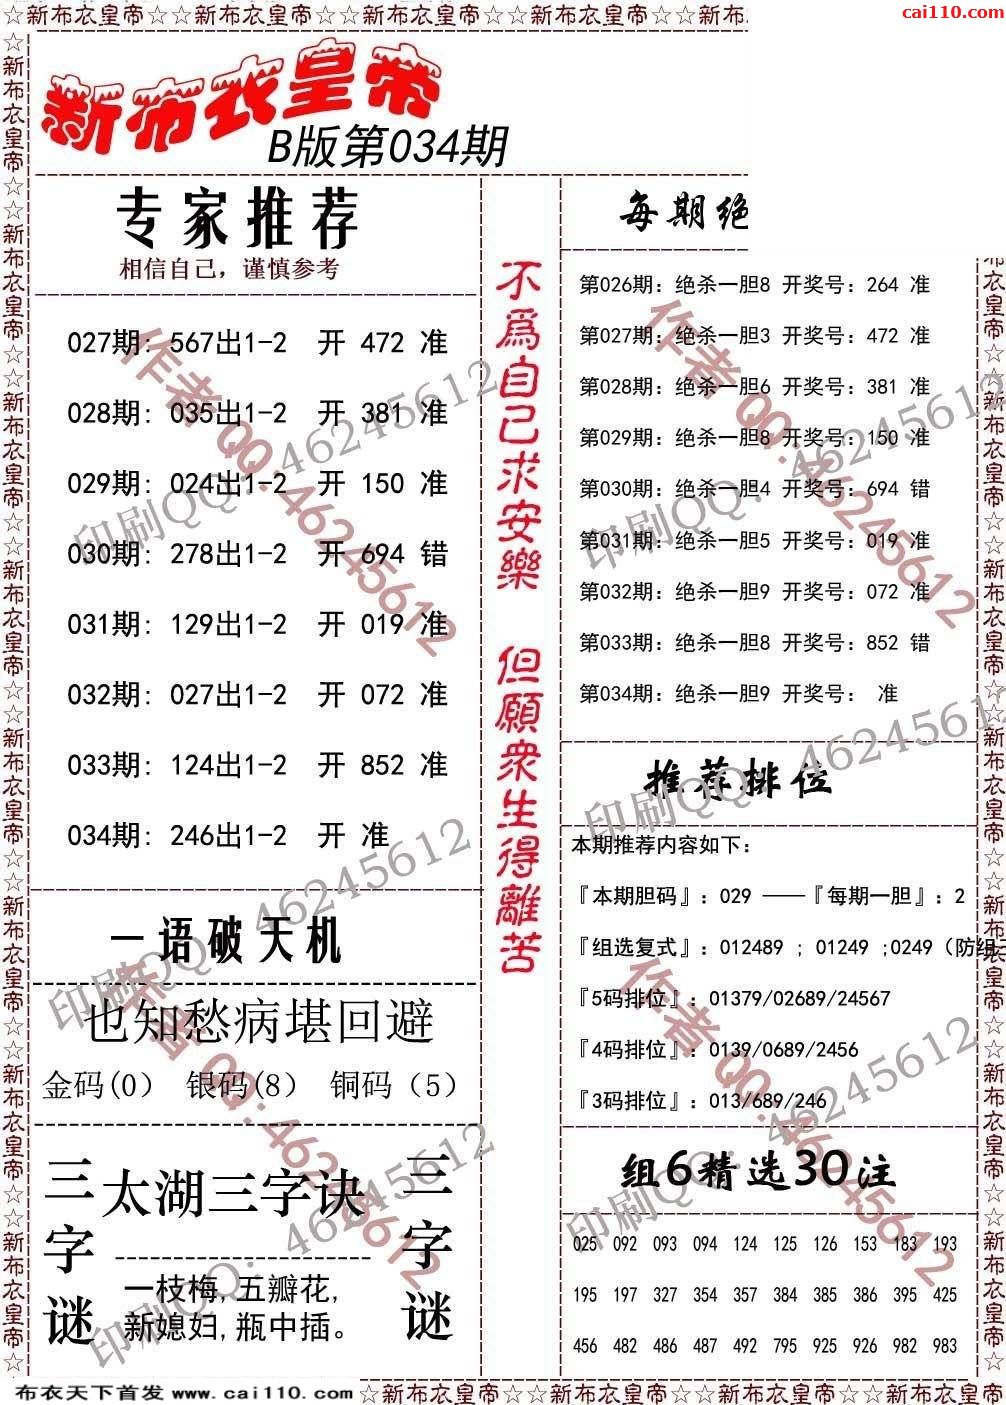 ☆新布衣皇帝☆☆新布衣皇帝☆☆新布衣皇帝☆☆新布衣皇帝☆☆新布
cai110.com
新布衣皇帝
B版第034期
专家推荐
相信自己，谨慎参考
027期: 567出1-2 开 472 准
028期: 035出1-2 开 381 准
029期: 024出1-2 开 150 准
030期: 278出1-2 开 694 错
031期: 129出1-2 开 019 准
032期: 027出1-2 开 072 准
033期: 124出1-2 开 852 准
034期: 246出1-2 开 准
一语破天机
也知愁病堪回避
金码(0) 银码(8) 铜码（5）
三字谜
太湖三字诀
一枝梅,五瓣花,
新媳妇,瓶中插。
三字谜
不爲自己求安樂 但願衆生得離苦
每期绝
第026期: 绝杀一胆8 开奖号: 264 准
第027期: 绝杀一胆3 开奖号: 472 准
第028期: 绝杀一胆6 开奖号: 381 准
第029期: 绝杀一胆8 开奖号: 150 准
第030期: 绝杀一胆4 开奖号: 694 错
第031期: 绝杀一胆5 开奖号: 019 准
第032期: 绝杀一胆9 开奖号: 072 准
第033期: 绝杀一胆8 开奖号: 852 错
第034期: 绝杀一胆9 开奖号: 准
推荐排位
本期推荐内容如下:
『本期胆码』: 029 ——『每期一胆』: 2
『组选复式』: 012489 ; 01249 ;0249（防组三
『5码排位』: 01379/02689/24567
『4码排位』: 0139/0689/2456
『3码排位』: 013/689/246
组6精选30注
025 092 093 094 124 125 126 153 183 193
195 197 327 354 357 384 385 386 395 425
456 482 486 487 492 795 925 926 982 983
作者 QQ: 46245612
印刷QQ: 46245612
作者 QQ: 46245612
印刷QQ: 46245612
印刷QQ: 46245612
作者 QQ: 46245612
印刷QQ: 46245612
作者 QQ: 46245612
印刷QQ: 46245612
印刷QQ: 46245612
☆新布衣皇帝☆☆新布衣皇帝☆☆新布衣皇帝☆☆新布衣皇帝☆☆新布衣皇帝☆☆新布衣皇帝☆☆新布衣皇帝☆☆新布衣皇帝☆
布衣天下首发 www.cai110.com
☆新布衣皇帝☆☆新布衣皇帝☆☆新布衣皇帝☆☆新布衣皇帝☆